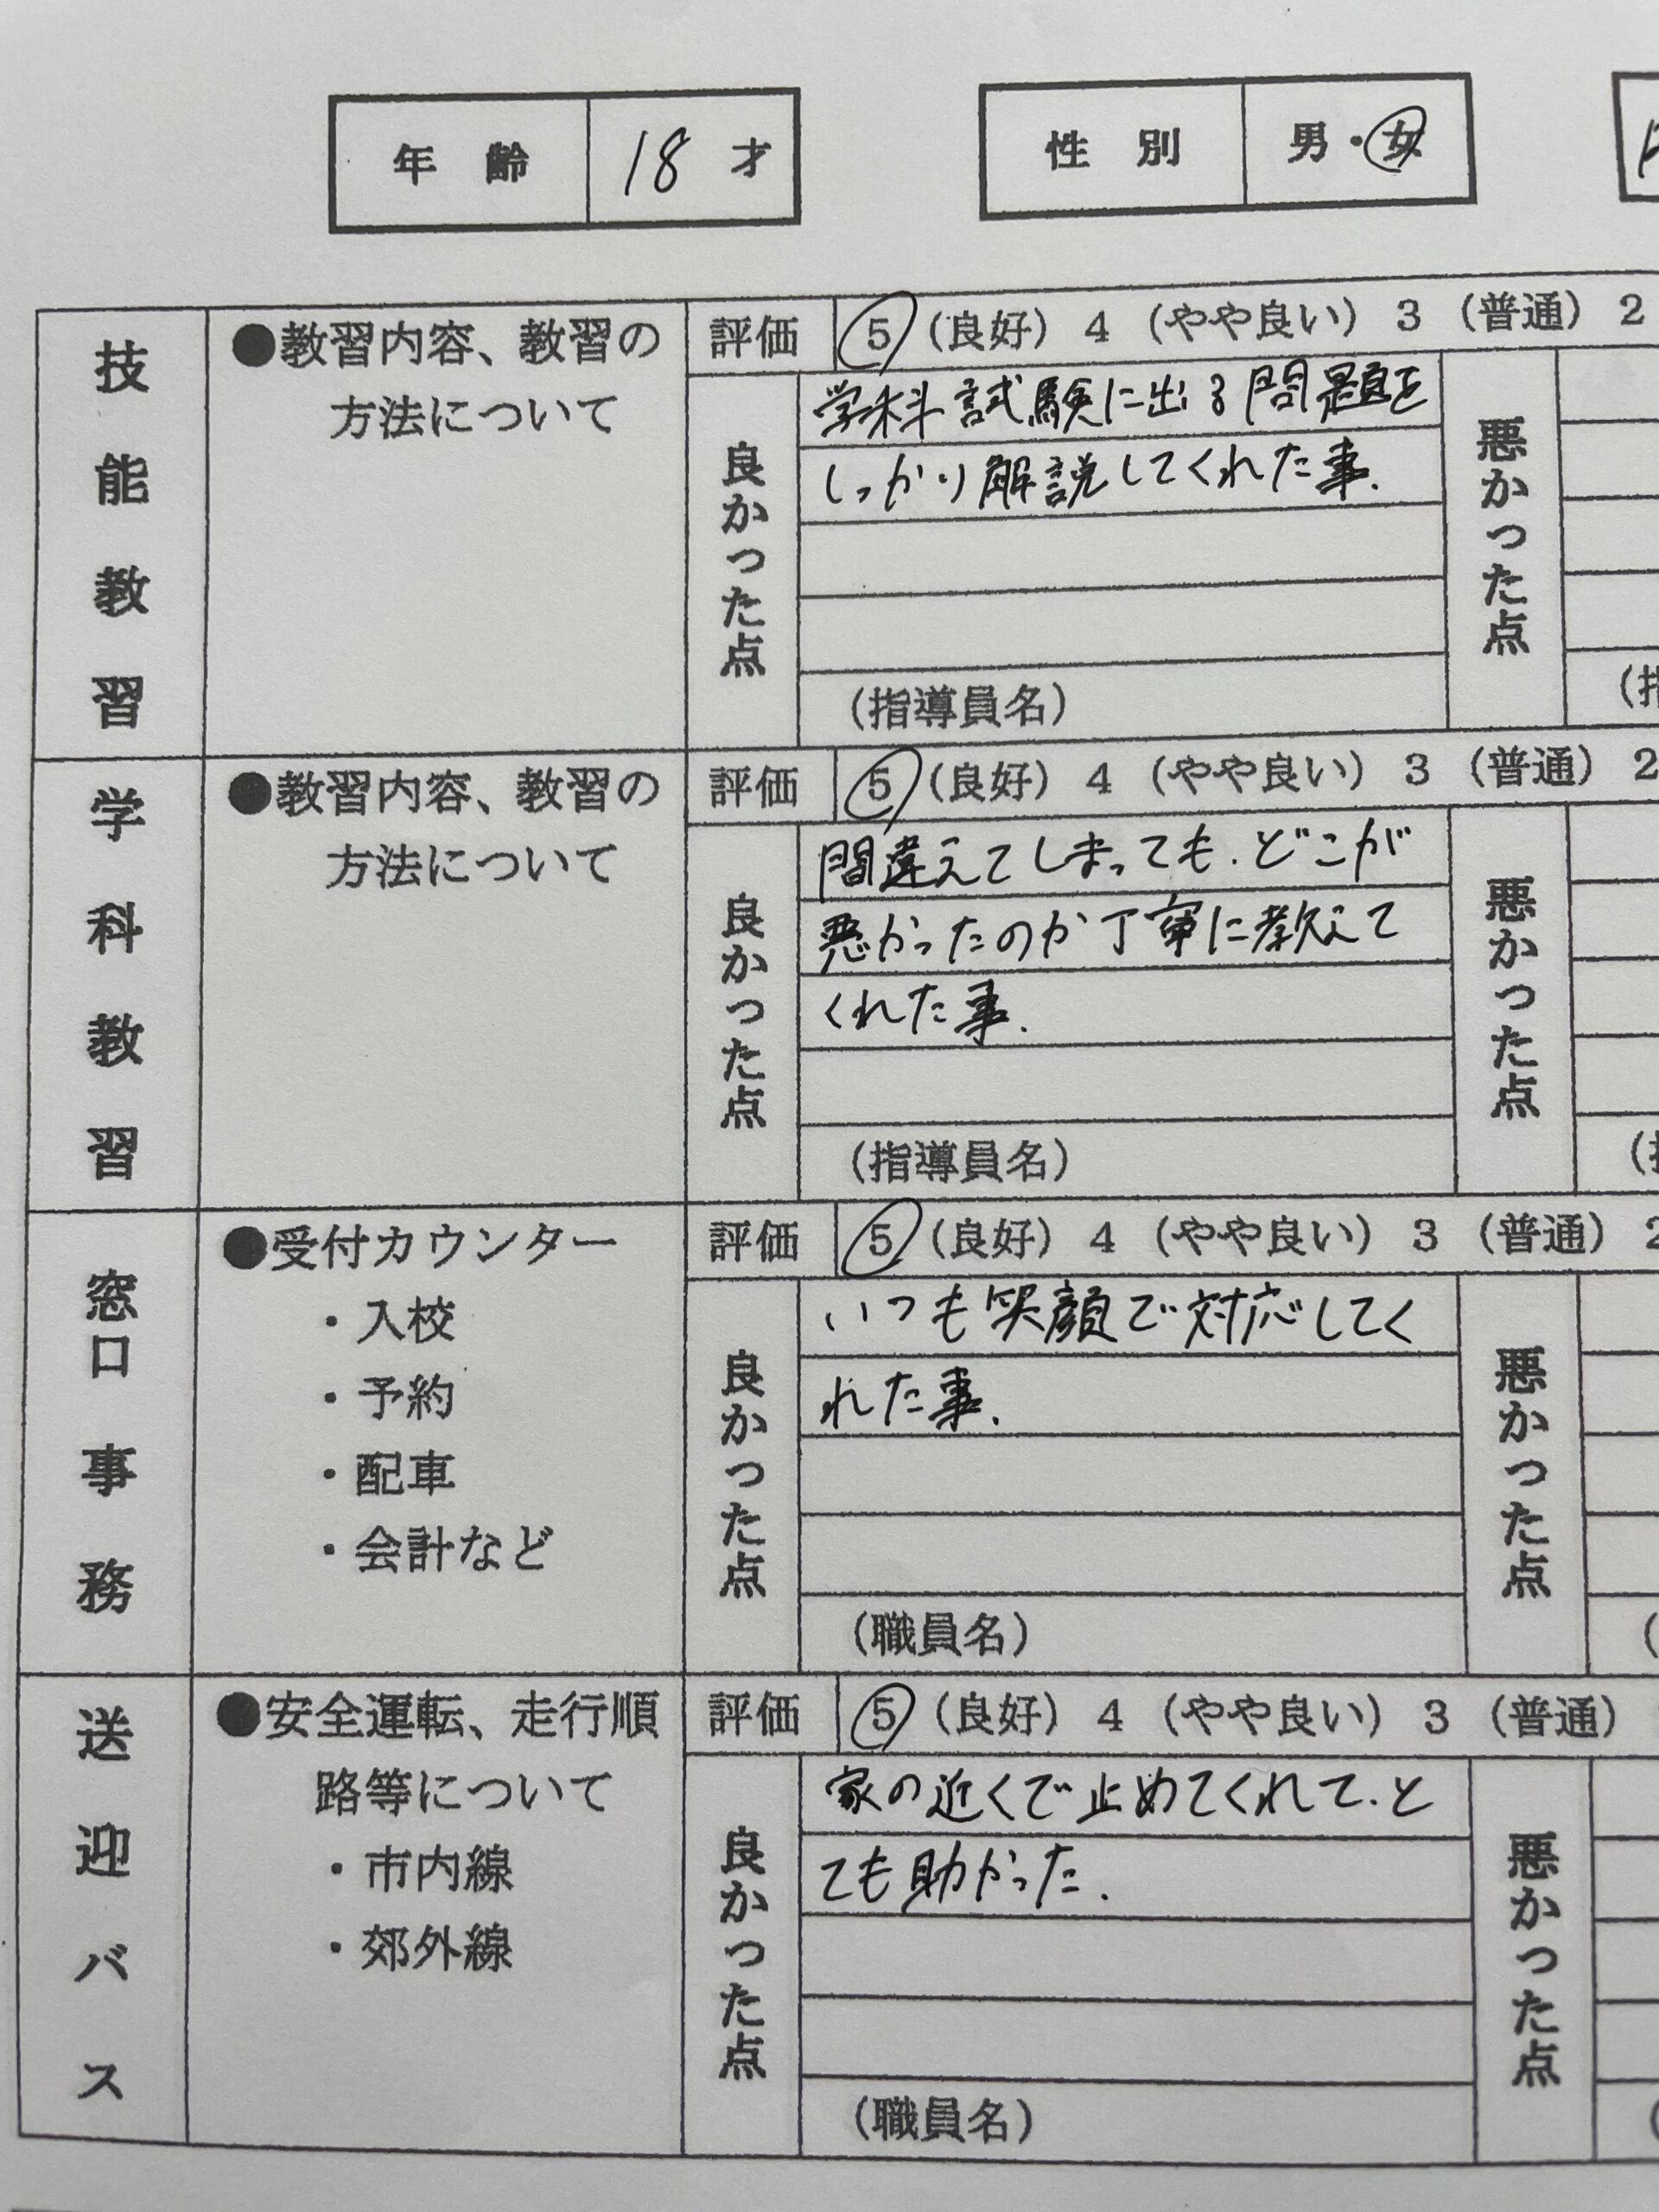 年齢 18 才
性別 男・女
技能教習
●教習内容、教習の
方法について
評価 5 (良好) 4 (やや良い) 3 (普通) 2
良かった点
学科試験に出る問題を
しっかり解説してくれた事.
(指導員名)
悪かった点
学科教習
●教習内容、教習の
方法について
評価 5 (良好) 4 (やや良い) 3 (普通) 2
良かった点
間違えてしまっても.どこが
悪かったのか丁寧に教えて
くれた事.
(指導員名)
悪かった点
窓口事務
●受付カウンター
・入校
・予約
・配車
・会計など
評価 5 (良好) 4 (やや良い) 3 (普通) 2
良かった点
いつも笑顔で対応してく
れた事.
(職員名)
悪かった点
送迎バス
●安全運転、走行順
路等について
・市内線
・郊外線
評価 5 (良好) 4 (やや良い) 3 (普通)
良かった点
家の近くで止めてくれて.と
ても助かった.
(職員名)
悪かった点